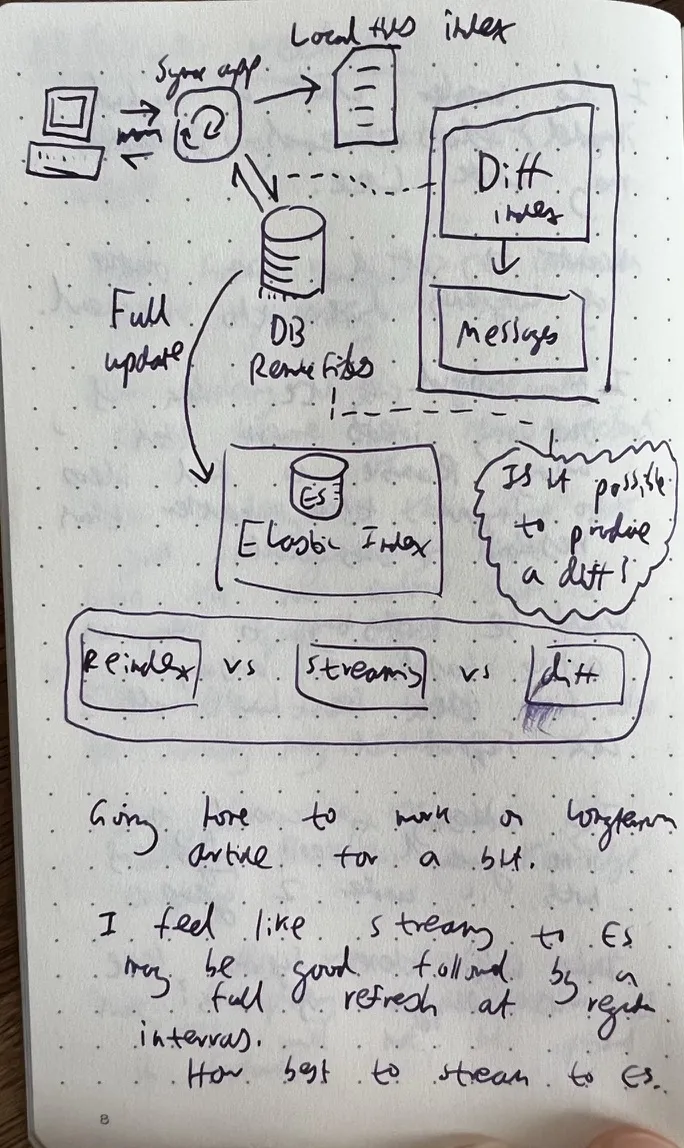 Local index
Sync app
Diff
index
Messages
Full
update
DB
Remote Files
ES
Elastic Index
Is it possible
to produce
a diff?
Reindex vs streaming vs diff
Going to work on longterm
for a bit.
I feel like streaming to ES
may be good followed by a
full refresh at regular
intervals.
How best to stream to ES.
8